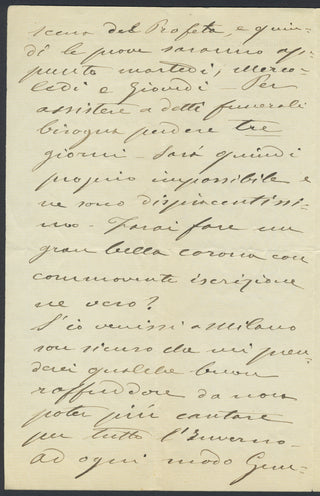 scena del Profeta, e quin-
di le prove saranno ap-
punto martedì, Merco-
ledì e Giovedì - Per
assistere a detti funerali
bisogna perdere tre
giorni - Sarà quindi
proprio impossibile e
ne sono dispiacentissi-
mo - Farai fare un
gran bella corona con
commovente iscrizione
ne vero?
S'io venissi a Milano
son sicuro che mi pren-
derei qualche buon
raffreddore da non
poter più cantare
per tutto l'Inverno -
Ad ogni modo